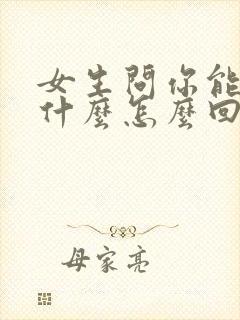 女生問你能
什麼怎麼回
母家亮